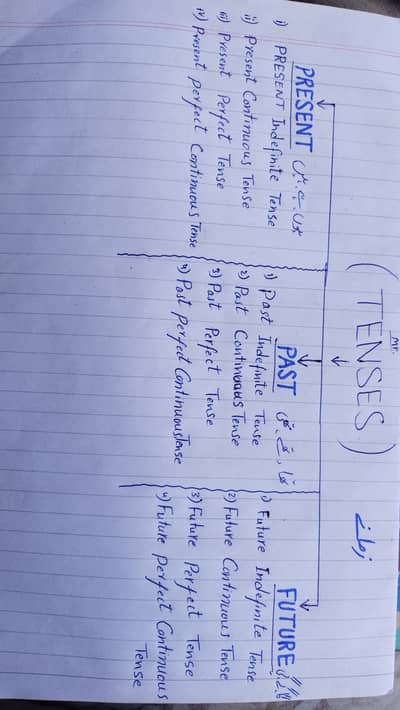 Mr.
(TENSES) زمانے
PRESENT
i) PRESENT Indefinite Tense
ii) Present Continuous Tense
iii) Present Perfect Tense
iv) Present perfect Continuous Tense
PAST
1) Past Indefinite Tense
2) Past Continuous Tense
3) Past Perfect Tense
4) Past perfect Continuous Tense
FUTURE
1) Future Indefinite Tense
2) Future Continuous Tense
3) Future Perfect Tense
4) Future perfect Continuous
Tense